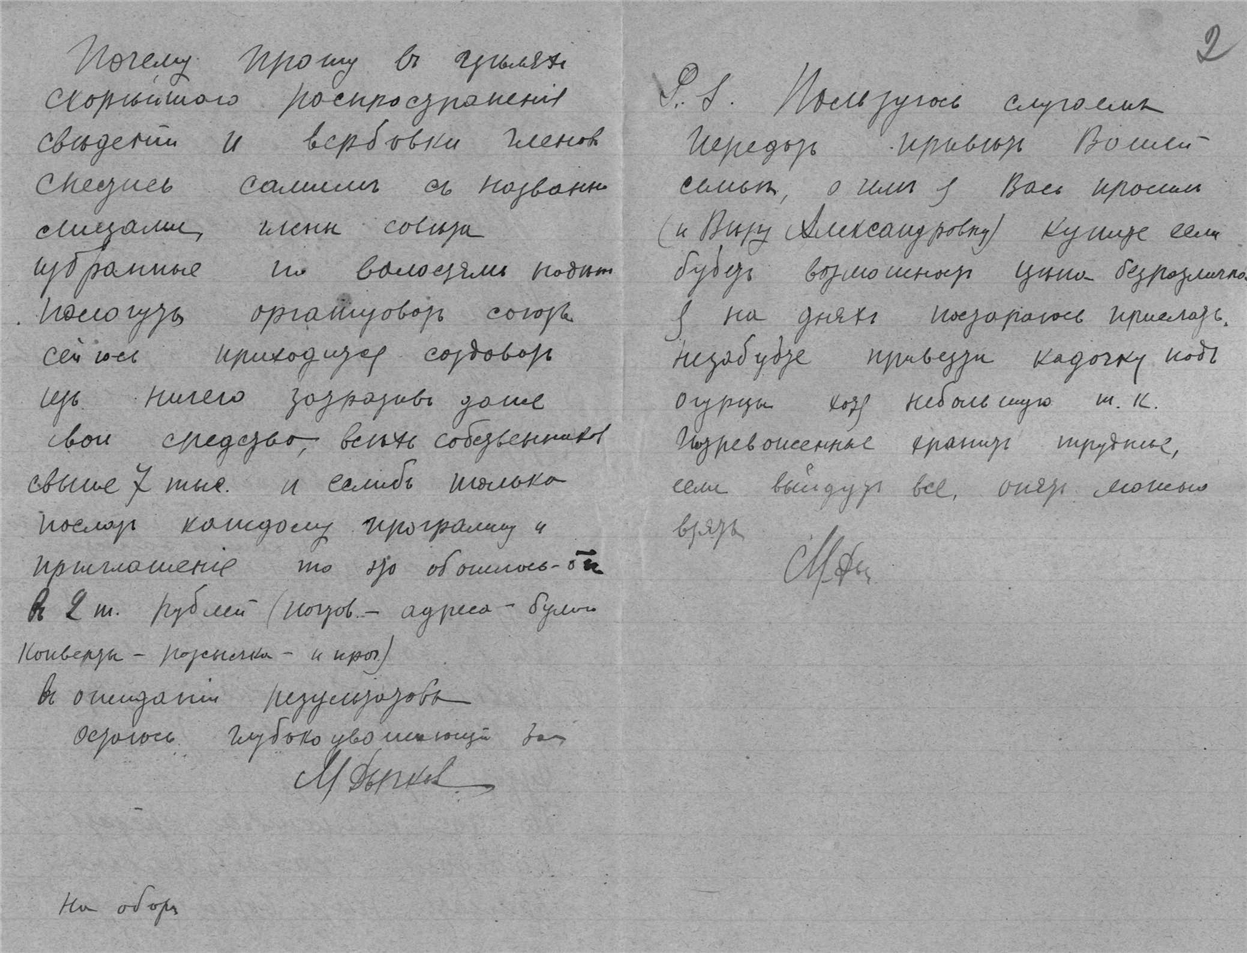 Почему прошу въ цѣляхъ
скорѣйшаго распространенія
свѣденій и вербовки членовъ
снестись самимъ съ названны
лицами, члены совѣта
избранные по волостямъ
помогутъ организовать союзъ
сейчасъ приходится создовать
изъ ничего затративъ даже
свои средства, всѣхъ собственниковъ
свыше 7 тыс. и еслибъ только
послать каждому программу и
приглашеніе то это обошлось-бы
въ 2 т. рублей (почтов. - адреса - бумаги
конверты - разсылка - и проч)
въ ожиданіи результатовъ
остаюсь глубокоуважающій Вас
М Дычков
на обор
2
P. S. Пользуюсь случаемъ
передать привѣтъ Вашей
семьѣ, о чемъ я Васъ просилъ
(и Вѣру Александровну) купите если
будетъ возможность цѣна безразлична
я на дняхъ постараюсь прислать,
незабудте привезти кадочку подъ
огурцы хотя небольшую т. к.
хранить трудные,
если выйдутъ все, опять можно
взять
М Ды